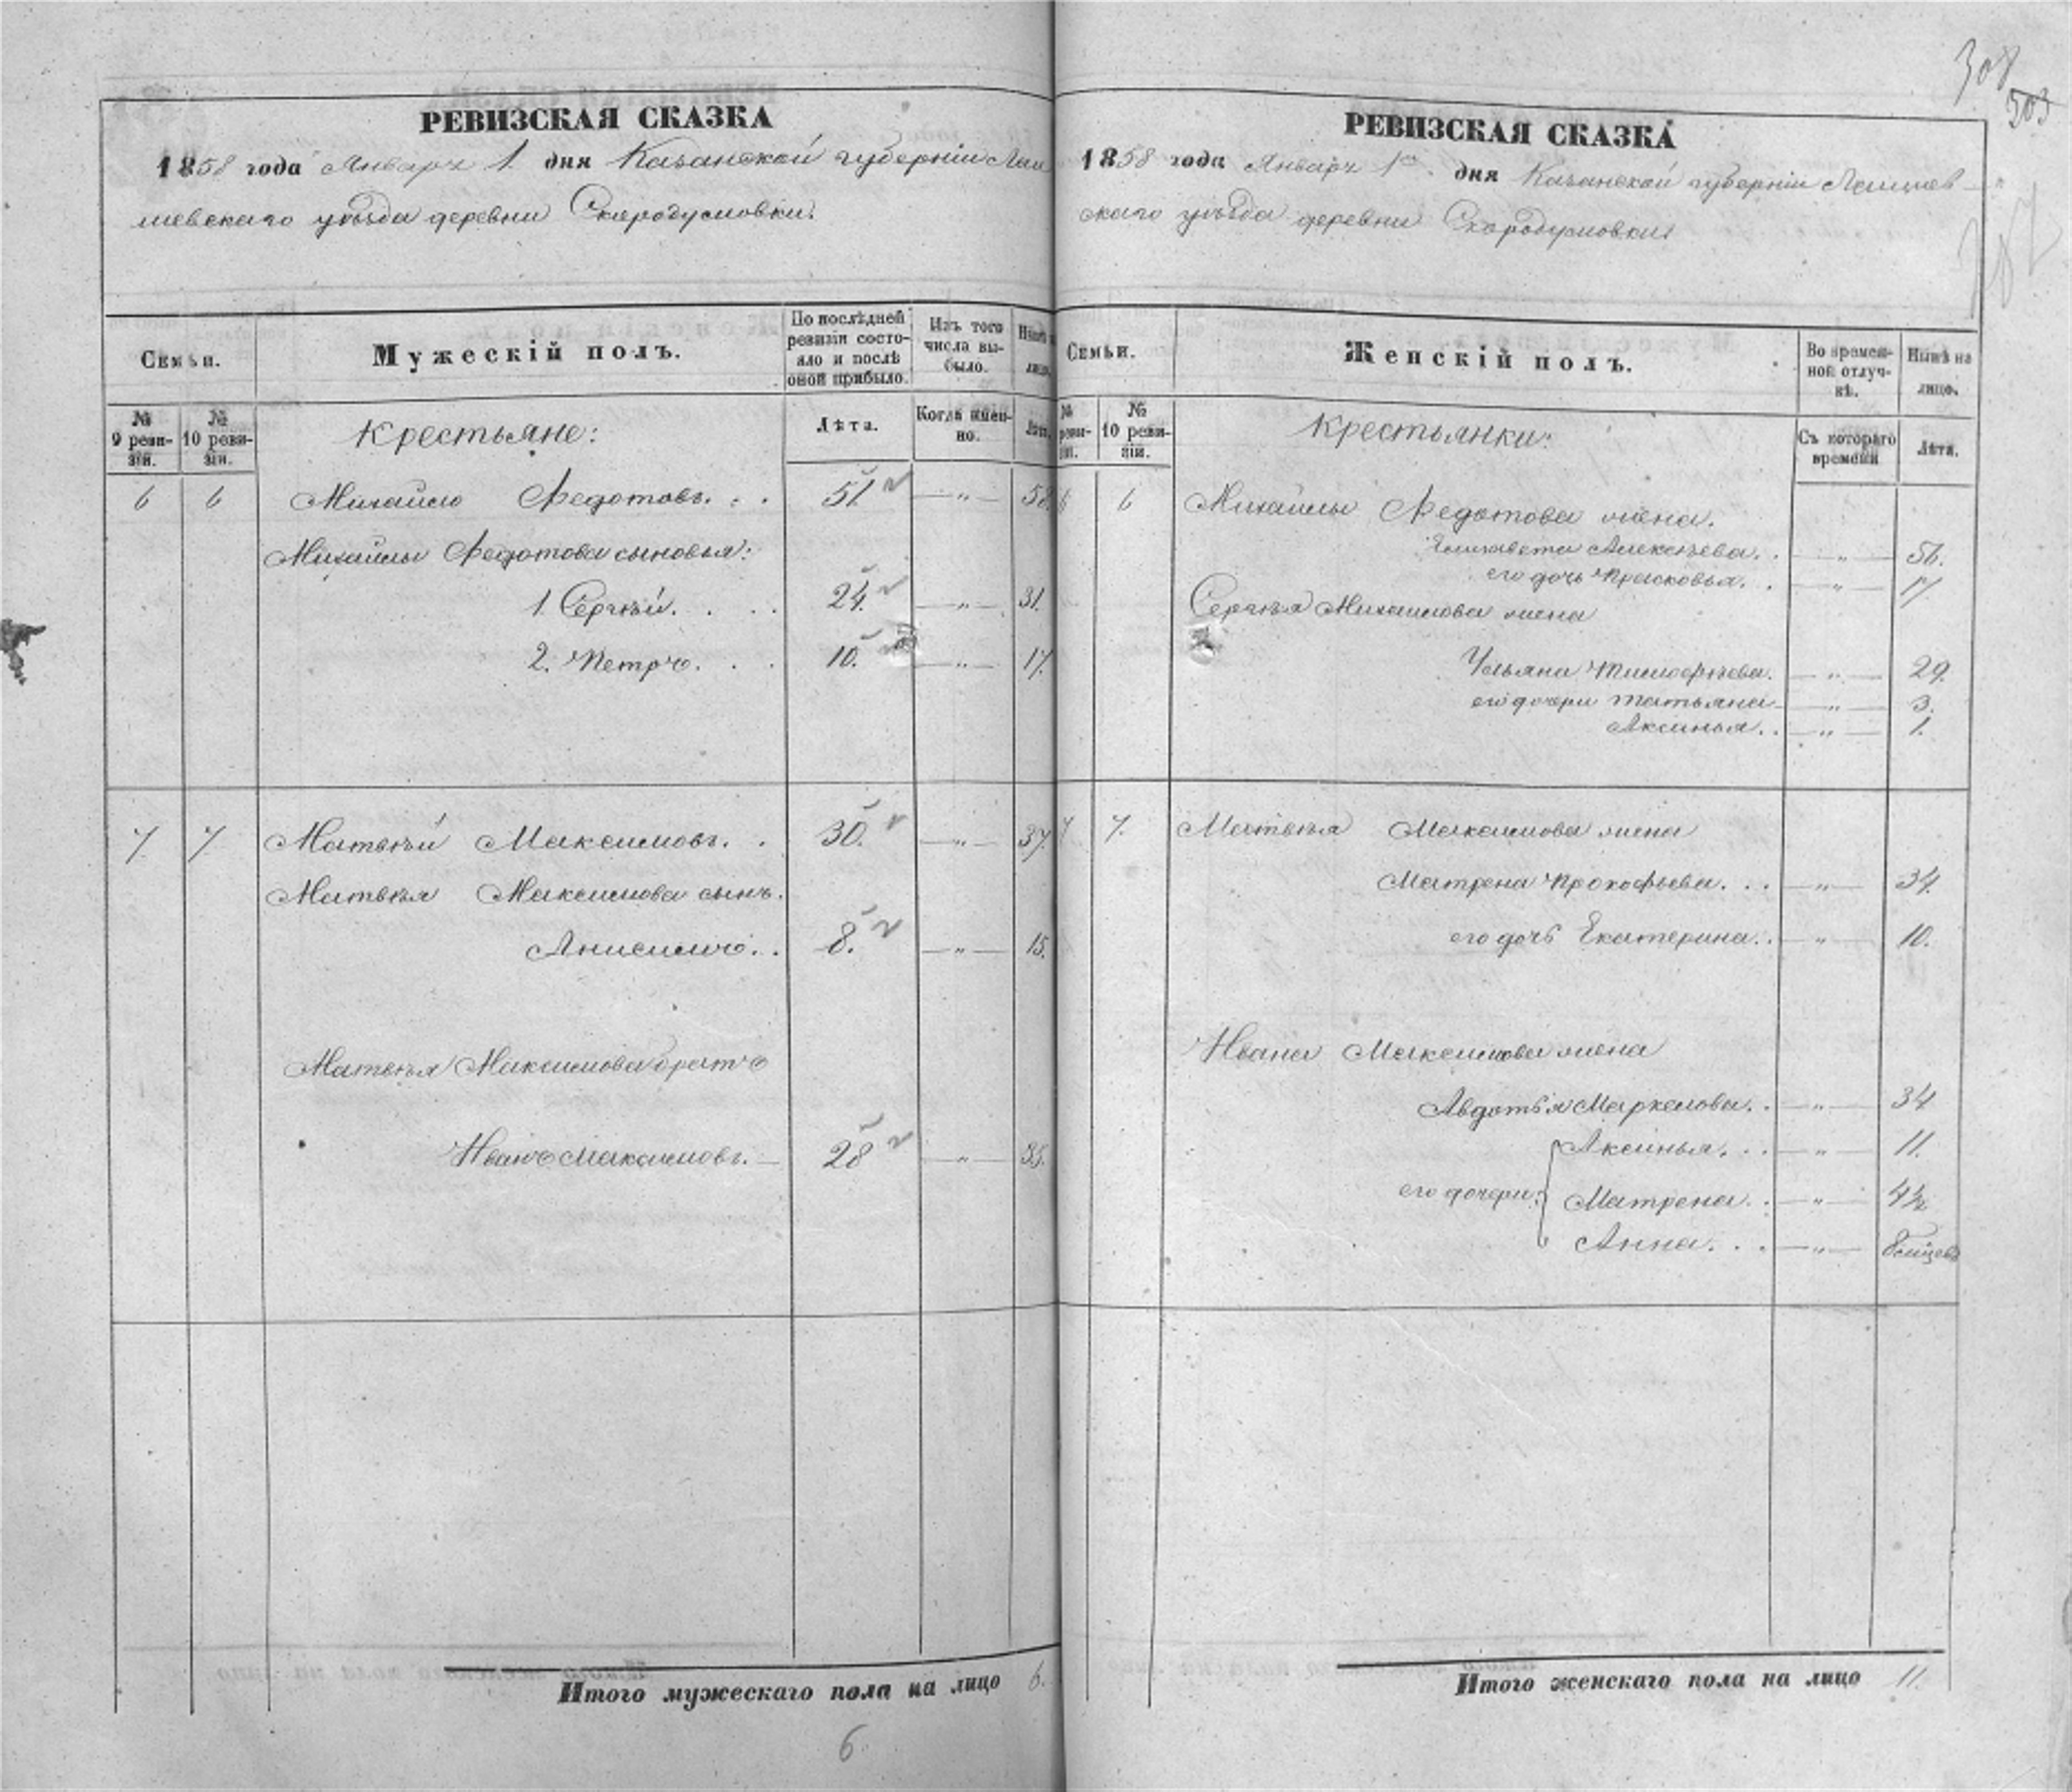 308
503
РЕВИЗСКАЯ СКАЗКА
1858 года Январч 1. дня Казанской губерніи Лаи
шевскаго уѣзда деревни Скородумовки.
Семьи.
Мужескій полъ.
По послѣдней ревизіи состояло и послѣ оной прибыло.
Изъ того числа выбыло.
№ 9 ревизіи.
№ 10 ревизіи.
Крестьяне:
Лѣта.
Когда именно.
Лѣта.
6 6 Михайло Федотовъ. 51. — " — 58
Михайлы Федотова сыновья:
1. Сергѣй. 24. — " — 31.
2. Петръ. 10. — " — 17.
7. 7. Матвѣй Максимовъ. 30. — " — 37.
Матвѣя Максимова сынъ.
Анисимъ. 8. — " — 15.
Матвѣя Максимова братъ
Иванъ Максимовъ. 28 — " — 35.
Итого мужескаго пола на лицо 6.
6
РЕВИЗСКАЯ СКАЗКА
1858 года Январч 1го дня Казанской губерніи Лаишев
скаго уѣзда деревни Скородумовки
Семьи.
Женскій полъ.
Во временной отлучкѣ.
Нынѣ на лицо.
№ 10 ревизіи.
Крестьянки:
Съ котораго времени
Лѣта.
6 6 Михайлы Федотова жена.
Елизавета Алексѣева. — " — 56.
его дочь Прасковья. — " — 17
Сергѣя Михаилова жена
Ульяна Тимофѣева. — " — 29.
его дочери Татьяна — " — 3.
Аксинья. — " — 1.
7 7. Матвѣя Максимова жена
Матрена Прокофьева. — " — 34.
его дочь Екатерина. — " — 10.
Ивана Максимова жена
Авдотья Маркелова. — " — 34
Аксинья. — " — 11.
его дочери: Матрена. — " — 4½
Анна. — " — 8 мѣцевъ
Итого женскаго пола на лицо 11.